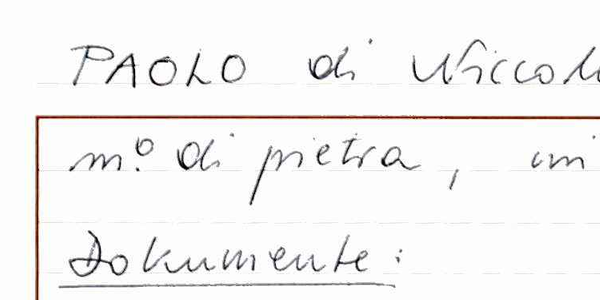 PAOLO di Niccol
m.º di pietra, in
Dokumente: